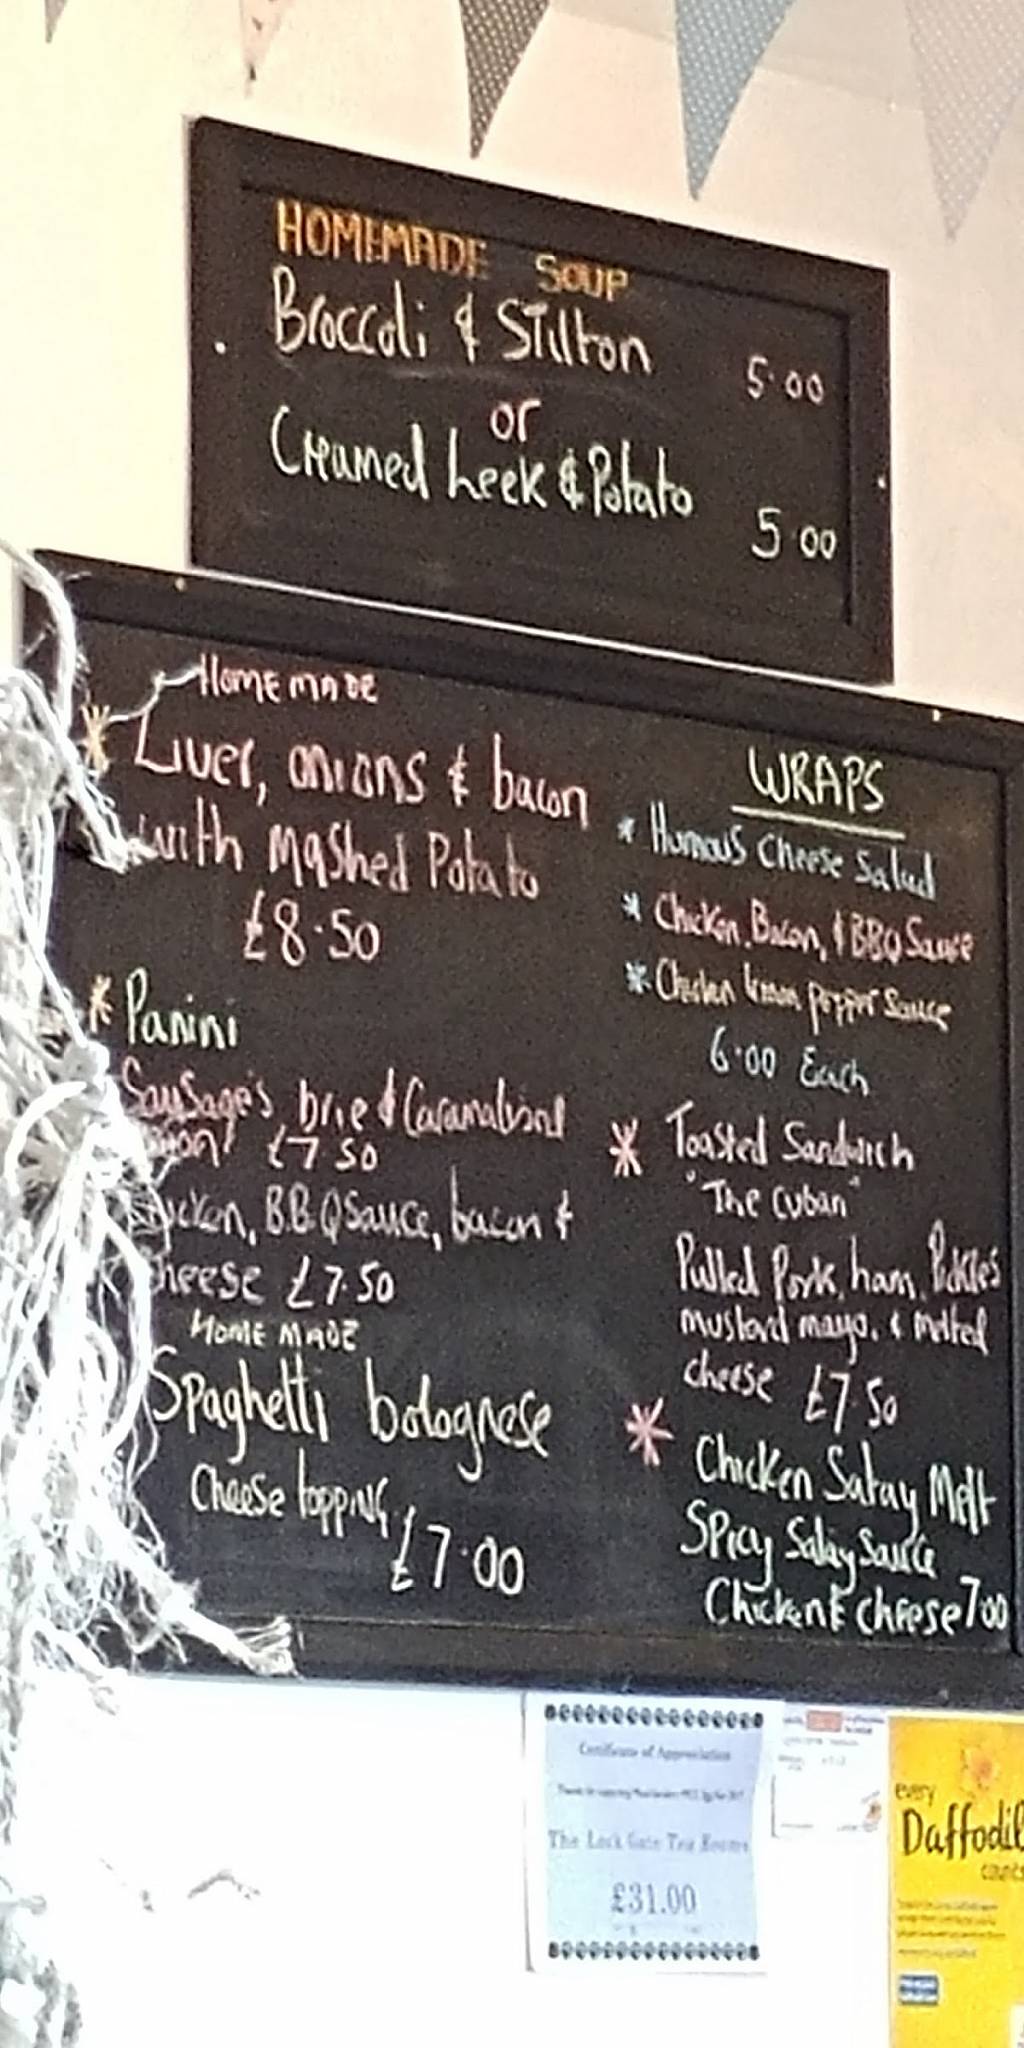 HOMEMADE SOUP
Broccoli & Stilton 5.00
or
Creamed Leek & Potato
5.00
Home made
* Liver, onions & bacon
with Mashed Potato
£8.50
* Panini
Sausage's brie & Caramalised
£7.50
B.B.Q Sauce, bacon &
cheese £7.50
HOME MADE
Spaghetti bolognese
Cheese topping
£7.00
WRAPS
* Humous Cheese Salad
* Chicken, Bacon, & BBQ Sauce
* Chicken lemon pepper Sauce
6.00 Each
* Toasted Sandwich
"The Cuban"
Pulled Pork, ham, Pickles
mustard mayo. & melted
cheese £7.50
* Chicken Satay Melt
Spicy Satay Sauce
Chicken & cheese 7.00
Certificate of Appreciation
The Lock Gate Tea Rooms
£31.00
every
Daffodil
counts